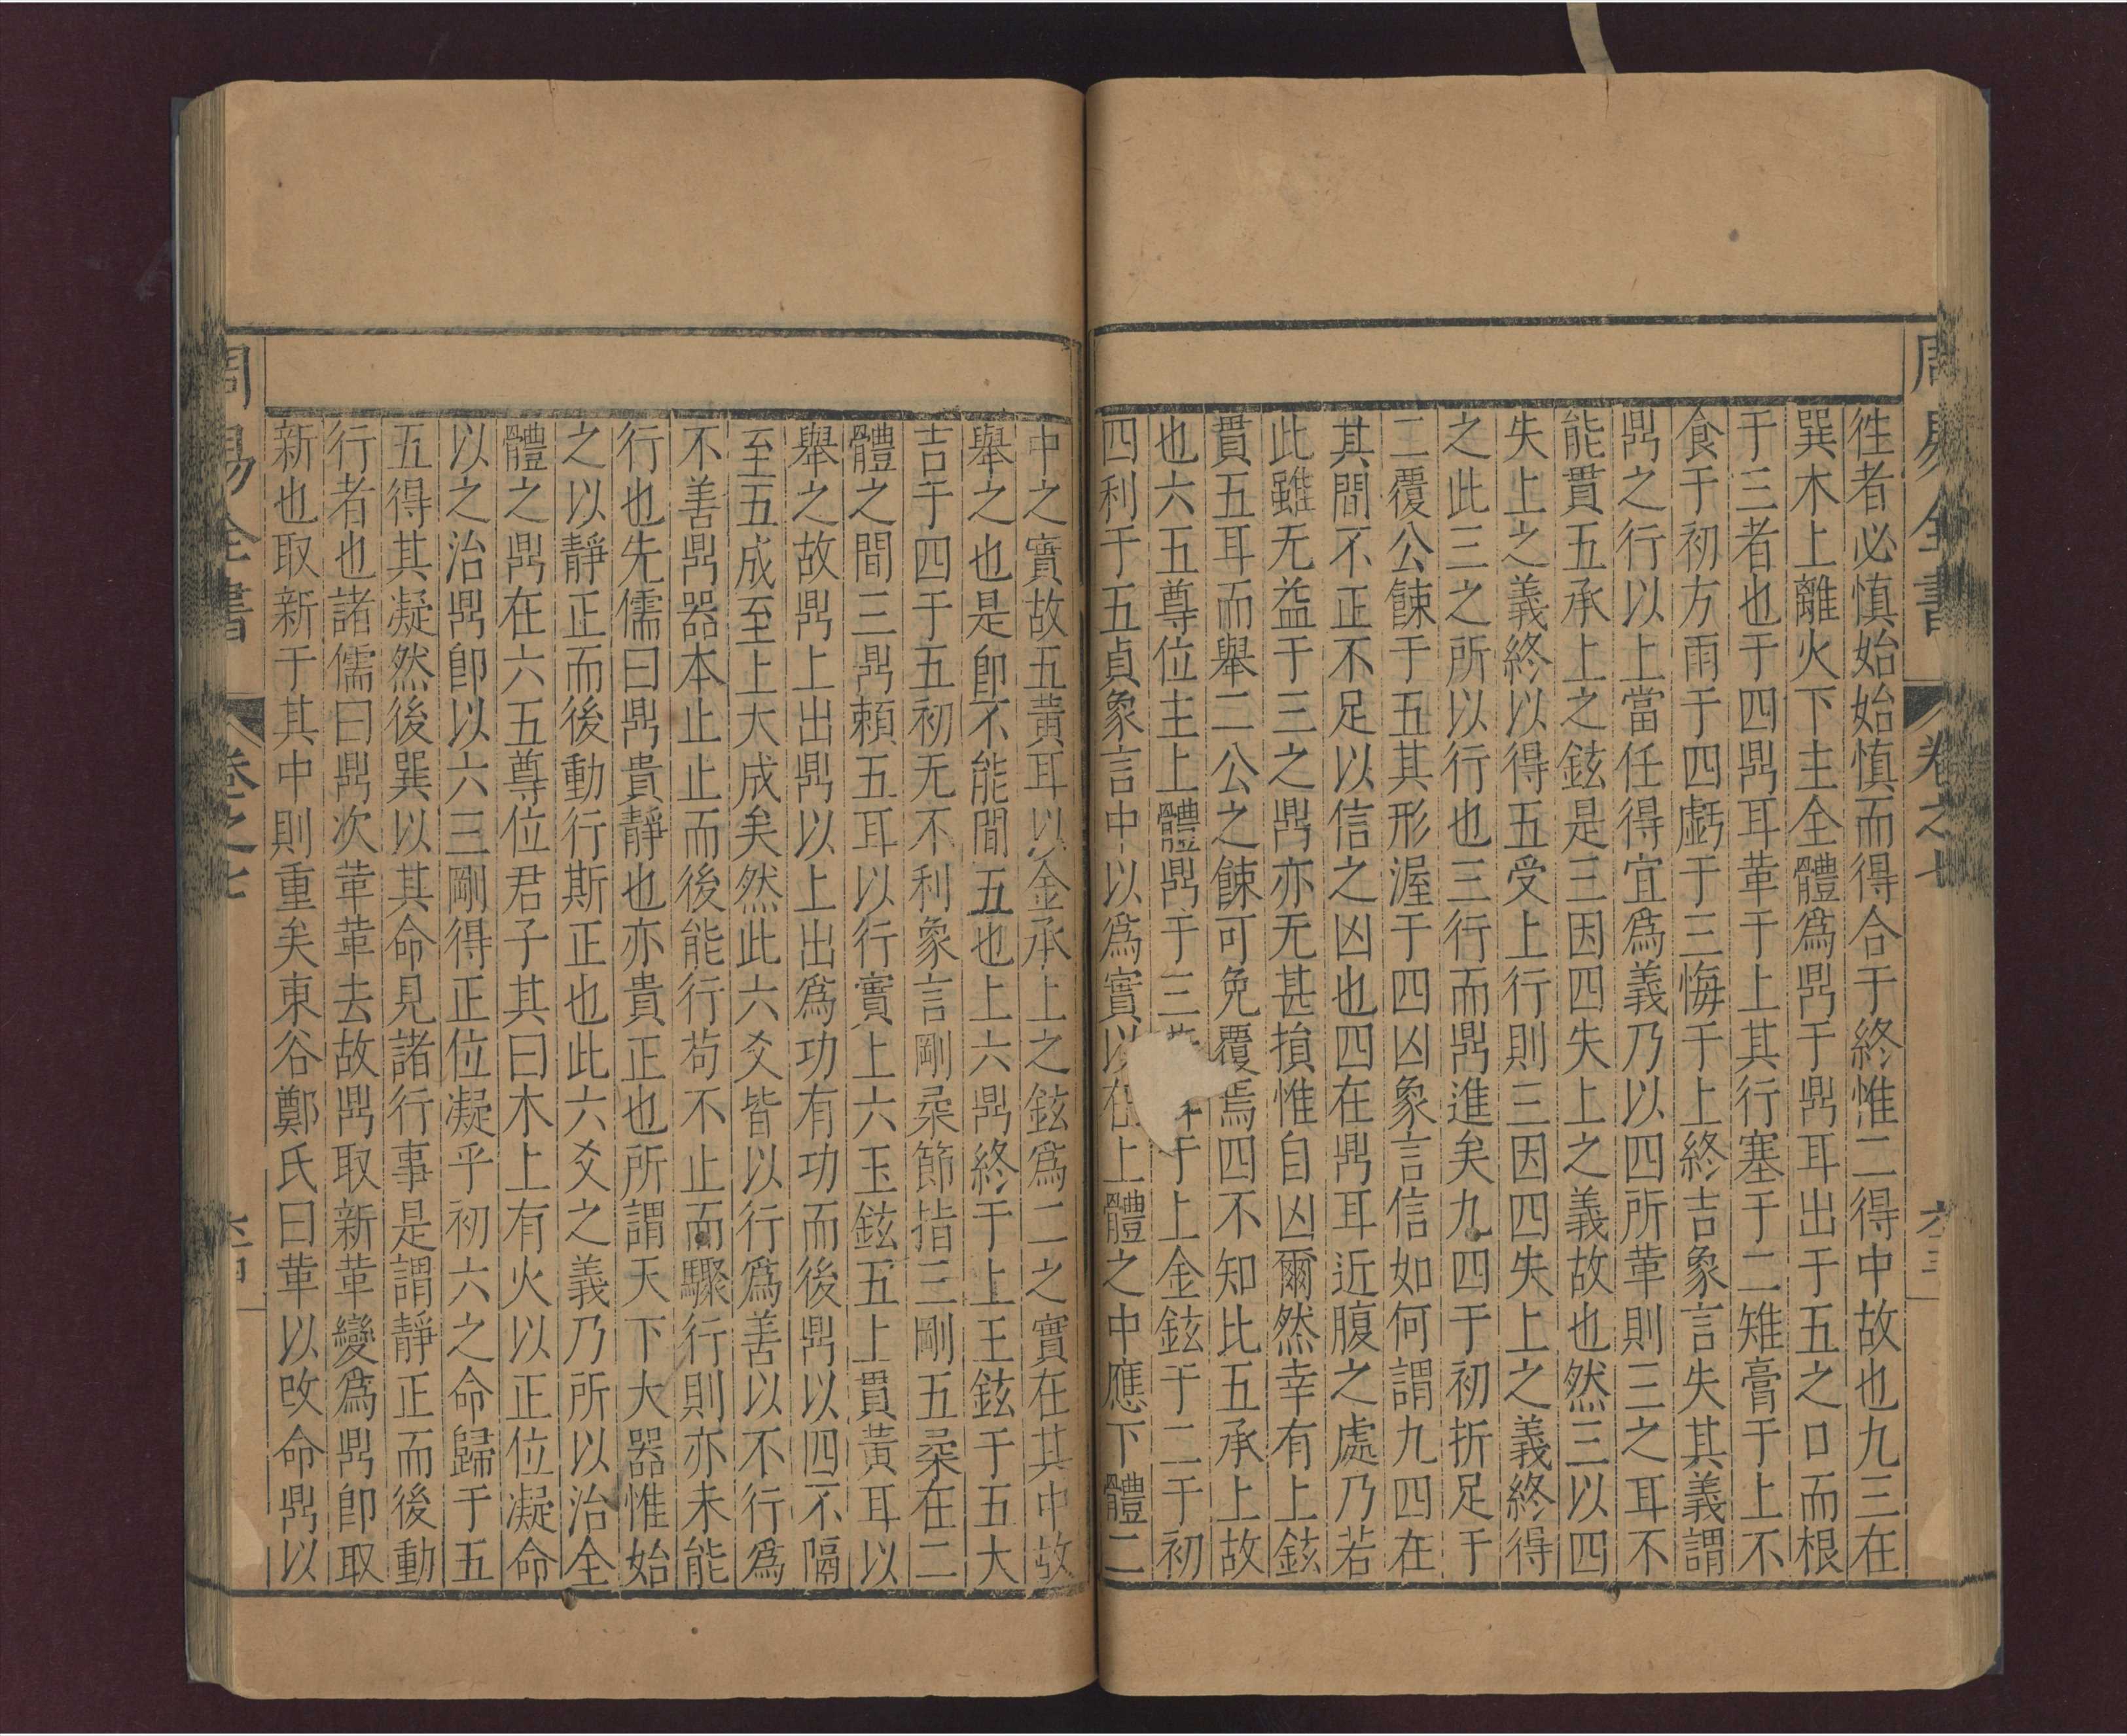 周易全書 卷之七 六三
徃者必慎始始慎而得合于終惟二得中故也九三在
巽木上離火下主全體爲鼎于鼎耳出于五之口而根
于三者也于四鼎耳革于上其行塞于二雉膏于上不
食于初方雨于四虧于三悔于上終吉象言失其義謂
鼎之行以上當任得宜爲義乃以四所革則三之耳不
能貫五承上之鉉是三因四失上之義故也然三以四
失上之義終以得五受上行則三因四失上之義終得
之此三之所以行也三行而鼎進矣九四于初折足于
二覆公餗于五其形渥于四凶象言信如何謂九四在
其間不正不足以信之凶也四在鼎耳近腹之處乃若
此雖无益于三之鼎亦无甚損惟自凶爾然幸有上鉉
貫五耳而舉二公之餗可免覆焉四不知比五承上故
也六五尊位主上體鼎于三于上金鉉于二于初
四利于五貞象言中以爲實以在上體之中應下體二
中之實故五黃耳以金承上之鉉爲二之實在其中故
舉之也是卽不能間五也上六鼎終于上王鉉于五大
吉于四于五初无不利象言剛柔節指三剛五柔在二
體之間三鼎頼五耳以行實上六玉鉉五上貫黃耳以
舉之故鼎上出鼎以上出爲功有功而後鼎以四不隔
至五成至上大成矣然此六爻皆以行爲善以不行爲
不善鼎器本止止而後能行苟不止而驟行則亦未能
行也先儒曰鼎貴靜也亦貴正也所謂天下大器惟始
之以靜正而後動行斯正也此六爻之義乃所以治全
體之鼎在六五尊位君子其曰木上有火以正位凝命
以之治鼎卽以六三剛得正位凝乎初六之命歸于五
五得其凝然後巽以其命見諸行事是謂靜正而後動
行者也諸儒曰鼎次革革去故鼎取新革變爲鼎卽取
新也取新于其中則重矣東谷鄭氏曰革以改命鼎以
周易全書 卷之七 六四